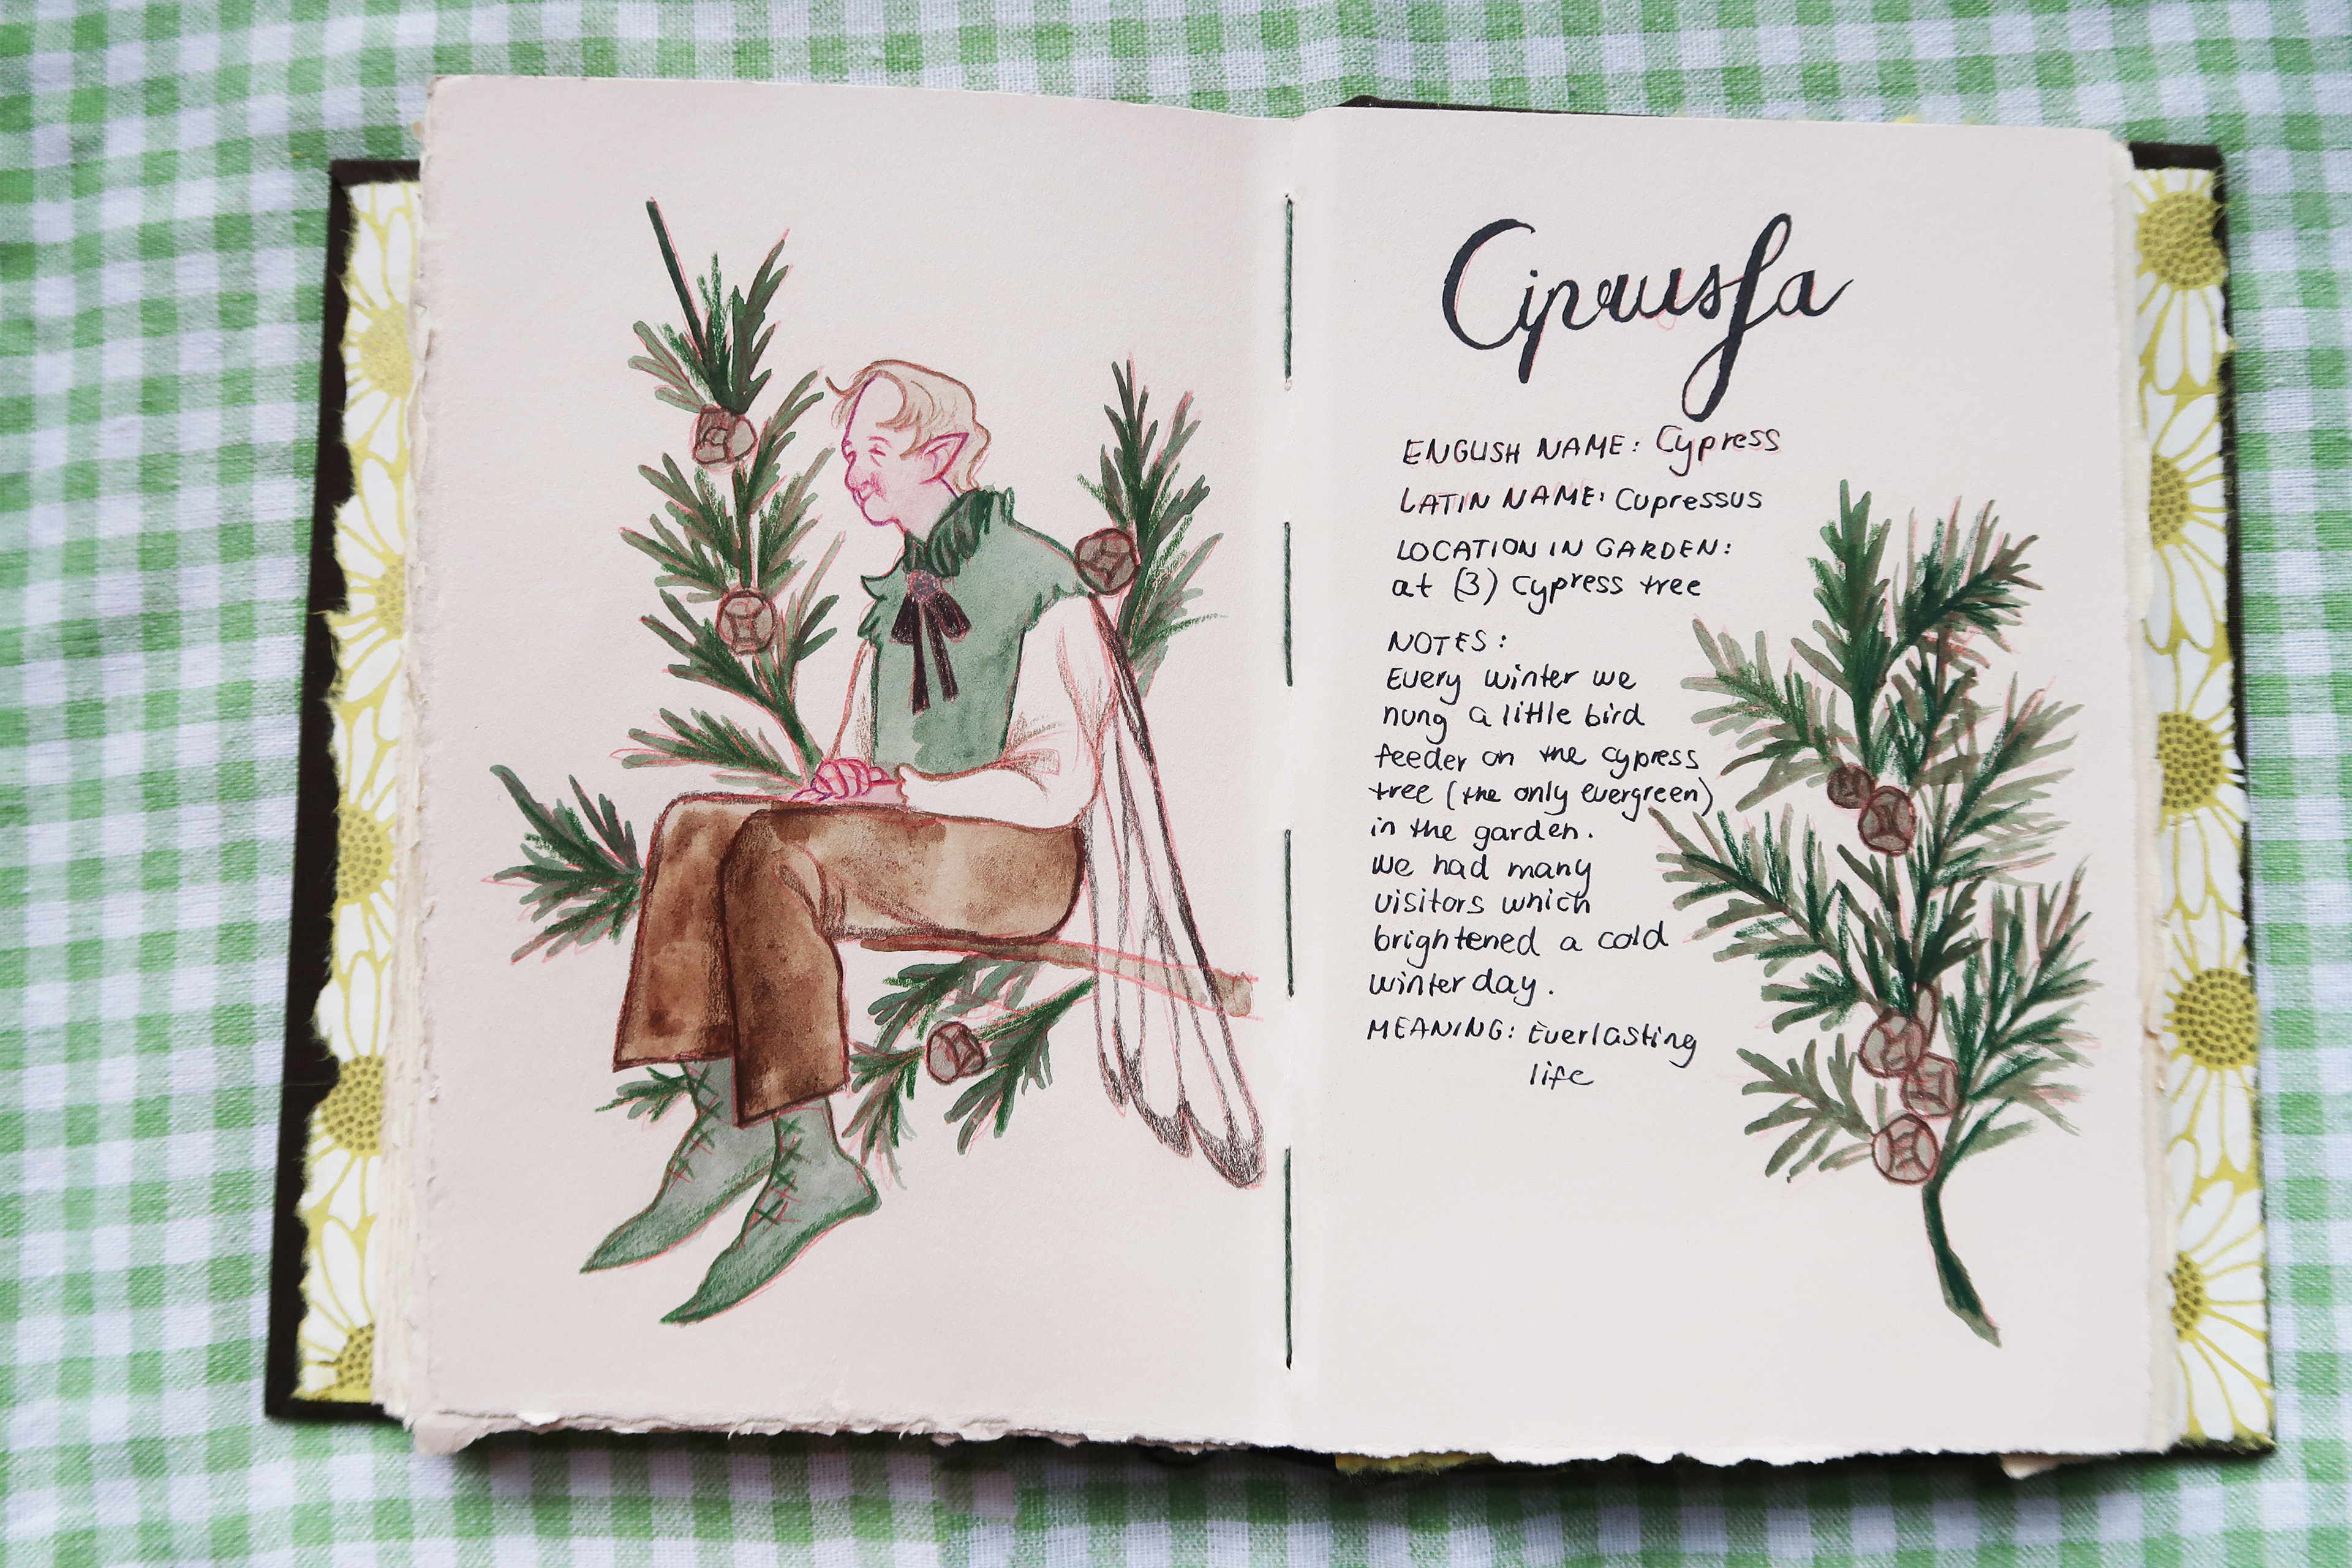 Ciprusfa
ENGLISH NAME: Cypress
LATIN NAME: Cupressus
LOCATION IN GARDEN:
at (3) Cypress tree
NOTES:
Every winter we
hung a little bird
feeder on the cypress
tree (the only evergreen)
in the garden.
We had many
visitors which
brightened a cold
winter day.
MEANING: Everlasting
life